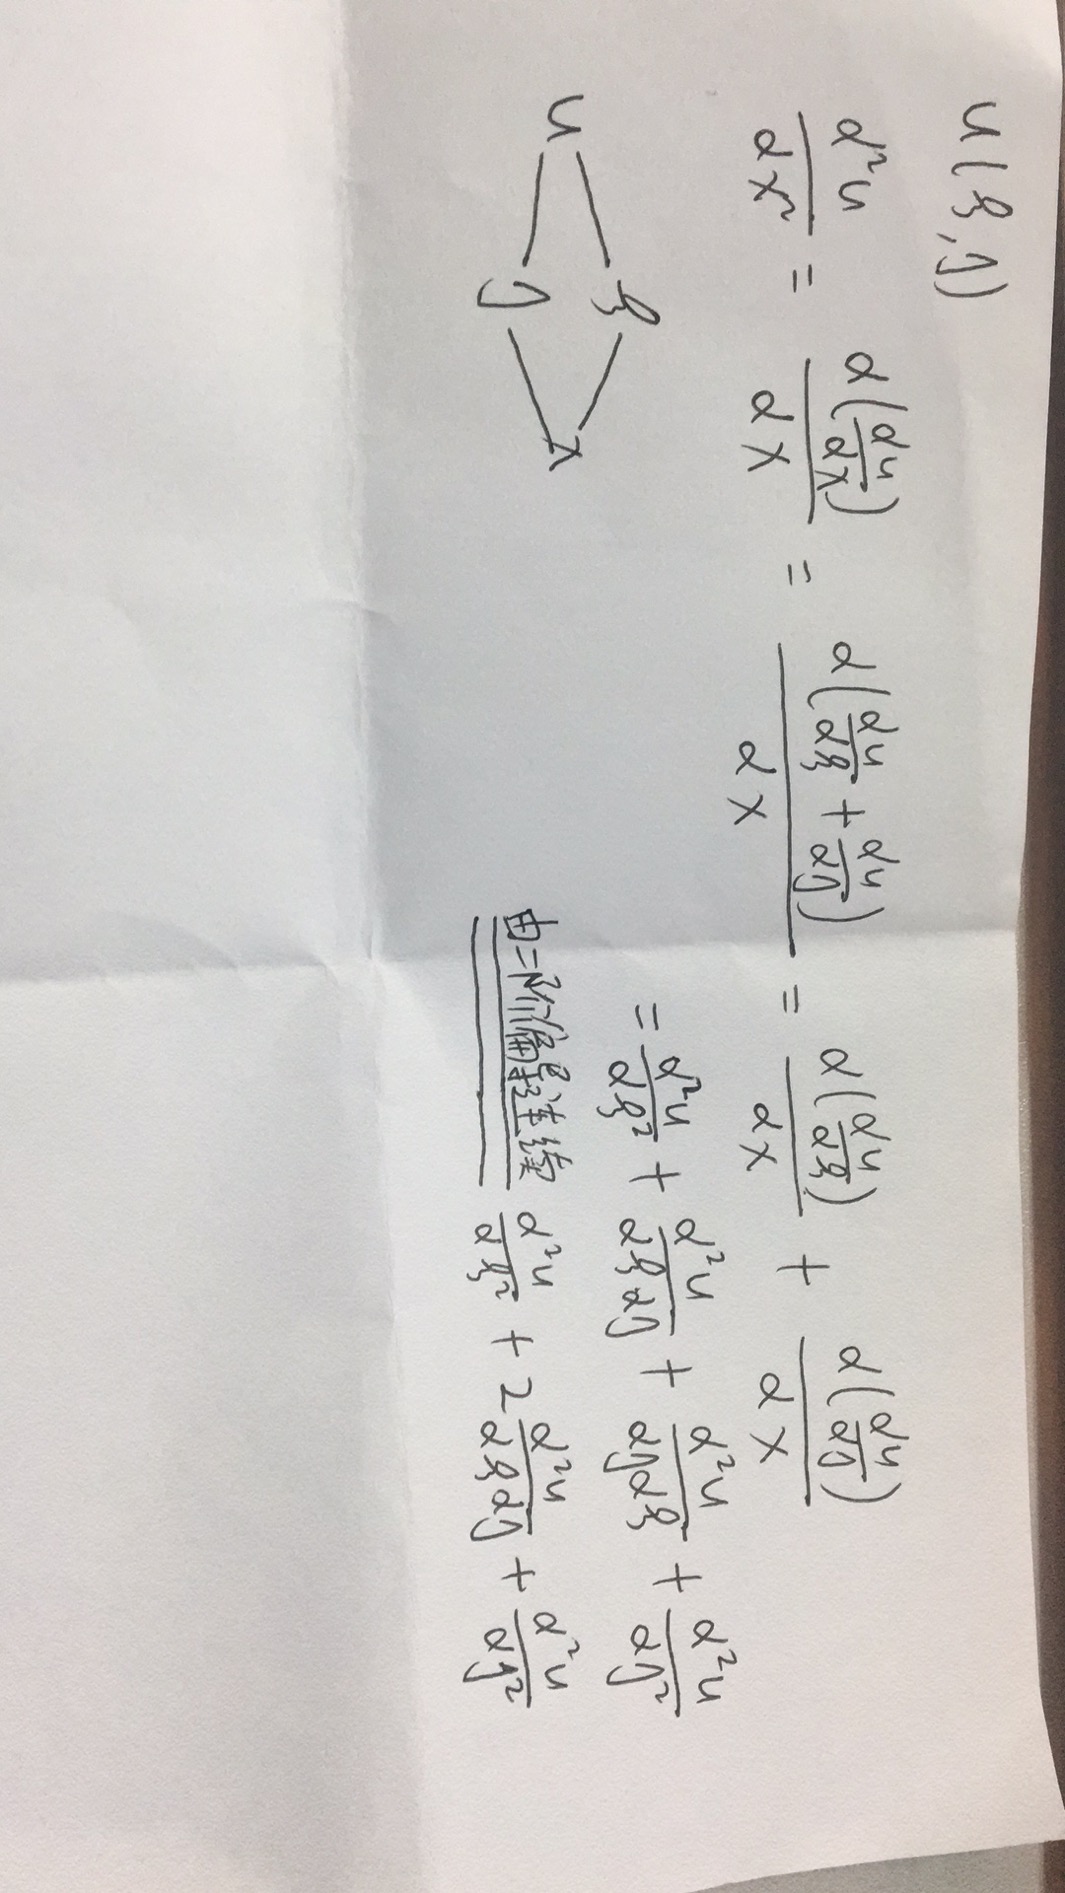 u(ξ,η)
∂²u/∂x² = ∂(∂u/∂x)/∂x = ∂(∂u/∂ξ + ∂u/∂η)/∂x = ∂(∂u/∂ξ)/∂x + ∂(∂u/∂η)/∂x
= ∂²u/∂ξ² + ∂²u/∂ξ∂η + ∂²u/∂η∂ξ + ∂²u/∂η²
u ξ η x
由二阶偏导连续 ∂²u/∂ξ² + 2 ∂²u/∂ξ∂η + ∂²u/∂η²